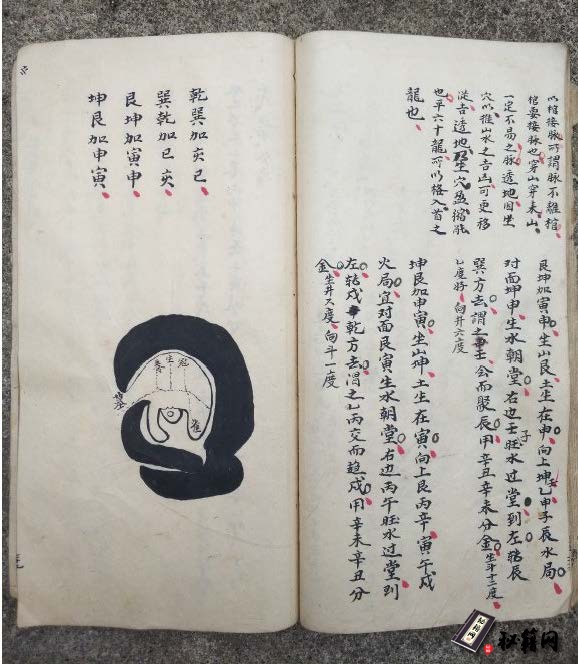 以棺接脉所謂脉不離棺
棺要接脉也穿山穿来山
一定不易之脉透地因坐
穴以推山水之吉凶可更移
從吉透地乃坐穴盈縮融
也平六十龍所以格入首之
龍也
艮坤加寅申坐山艮土生在申向上坤乙申子辰水局
對面坤申生水朝堂右边壬子旺水過堂到左轉辰
巽方去謂之辛壬会而聚辰用辛丑辛未分金坐斗十二度
七度好向井六度
坤艮加申寅坐山坤土生在寅向上艮丙辛寅午戌
火局宜對面艮寅生水朝堂右边丙午旺水過堂到
左轉戌乾方去謂之乙丙交而趨戌用辛未辛丑分
金坐井又度向斗一度
乾巽加亥巳
巽乾加巳亥
艮坤加寅申
坤艮加申寅
冠
生
養
秘籍网